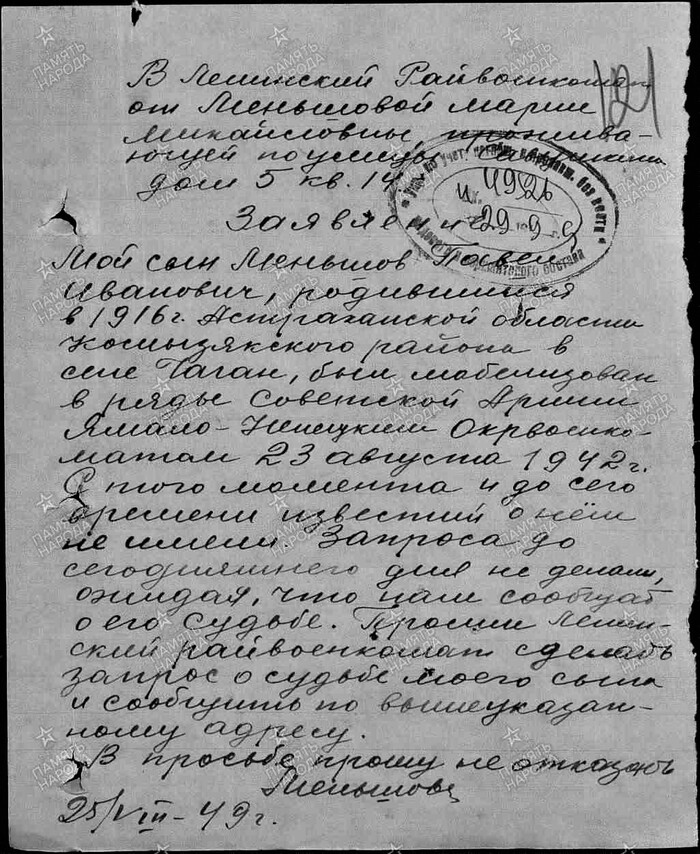 В Ленинский Райвоенкомат
от Меньшовой Марии
Михайловны, прожива-
ющей по улице
дом 5 кв. 14
121
Заявление
Упр. по учету погибш. и пропавш. без вести
рядового и сержантского состава
4926
29 9
Мой сын Меньшов Павел
Иванович, родившийся
в 1916 г. Астраханской области
Камызякского района в
селе Таган, был мобелизован
в ряды Советской Армии
Ямало-Ненецким Окрвоенко-
матом 23 августа 1942 г.
С того момента и до сего
времени известий о нём
не имеем. Запроса до
сегодняшнего дня не делали,
ожидая, что нам сообщат
о его судьбе. Просим Ленин-
ский райвоенкомат сделать
запрос о судьбе моего сына
и сообщить по вышеуказан-
ному адресу.
В просьбе прошу не отказать
Меньшова
25/VIII-49 г.
ПАМЯТЬ НАРОДА